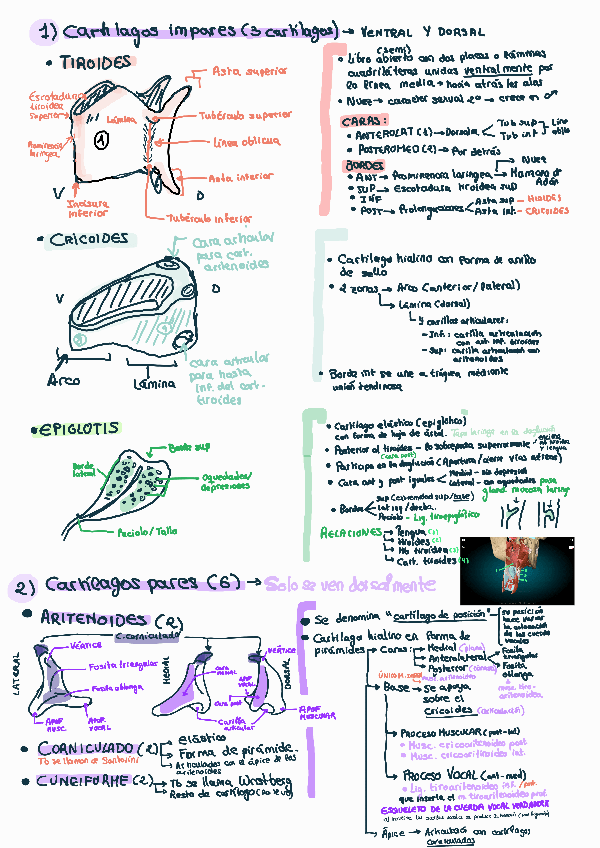 1) Cartílagos impares (3 cartílagos) → VENTRAL Y DORSAL
• TIROIDES
Asta superior
Escotadura tiroidea superior
Lámina
Tubérculo superior
1
Línea oblicua
Prominencia laríngea
Asta inferior
V
D
Incisura inferior
Tubérculo inferior
(semi)
• Libro abierto con dos placas o láminas
cuadriláteras unidas ventralmente por
la línea media → hacia atrás las alas
• Nuez → carácter sexual 2º → crece en ♂
CARAS:
• ANTEROLAT (2) → Dorsales
Tub sup
Tub inf
• POSTEROMED (2) → Por detrás
BORDES
• ANT → Prominencia laríngea
Nuez
Manzana de Adán
• SUP → Escotadura tiroidea sup
• INF
• POST → Prolongaciones
Asta sup – HIOIDES
Asta inf. – CRICOIDES
• CRICOIDES
Cara articular para cart. aritenoides
V
D
Arco
Lámina
Cara articular para hasta inf. del cart. tiroides
• Cartílago hialino con forma de anillo
de sello
• 2 zonas → Arco (anterior/lateral)
Lámina (dorsal)
4 carillas articulares:
– Inf: carilla articulación
con ast inf. tiroides
– Sup: carilla articulación con
aritenoides
• Borde inf se une a tráquea mediante
unión tendinosa
• EPIGLOTIS
Borde sup
Borde lateral
Oquedades/depresiones
Peciolo/Tallo
• Cartílago elástico (epiglótico)
con forma de hoja de árbol. Tapa laringe en la deglución
• Posterior al tiroides – lo sobrepasa superiormente
encima de tiroides y lengua
(cara post)
• Participa en la deglución (Apertura/cierre vías aéreas)
• Cara ant y post iguales
Medial – sin depresión
Lateral – con oquedades para
gland. mucosa laringe
• Bordes
Sup (extremidad sup/base)
Lat izq/decho.
Peciolo – Lig. tiroepiglótico
RELACIONES
Lengua (1)
Hioides (2)
Mb tiroidea (3)
Cart. tiroides (4)
2) Cartílagos pares (6) → Solo se ven dorsalmente
• ARITENOIDES (2)
C. corniculado
LATERAL
VÉRTICE
Fosita triangular
Fosita oblonga
APOF MUSC.
APOF. VOCAL
MEDIAL
Cara medial
Cara post
APOF. VOCAL
Carilla articular
VÉRTICE
DORSAL
APOF MUSCULAR
• CORNICULADO (2)
Tb se llaman de Santorini
elástico
Forma de pirámide.
Articulados con el ápice de los
aritenoides
• CUNEIFORME (2)
Tb se llama Wrisberg
Resto de cartílago
• Se denomina "cartílago de posición"
su posición hace variar la colocación de las cuerdas vocales
• Cartílago hialino en forma de
pirámides
Caras:
Medial (plana)
Anterolateral
Fosita triangular
Fosita oblonga
Posterior (cóncava)
Base → Se apoya
sobre el
Cricoides (articulación)
PROCESO MUSCULAR (post-lat)
• Musc. cricoaritenoideo post
• Musc. cricoaritenoideo lat.
PROCESO VOCAL (ant-med)
• Lig. tiroaritenoideo inf.
que inserta el m. tiroaritenoideo prof.
ESQUELETO DE LA CUERDA VOCAL VERDADERA
Ápice → Articulado con cartílagos
corniculados